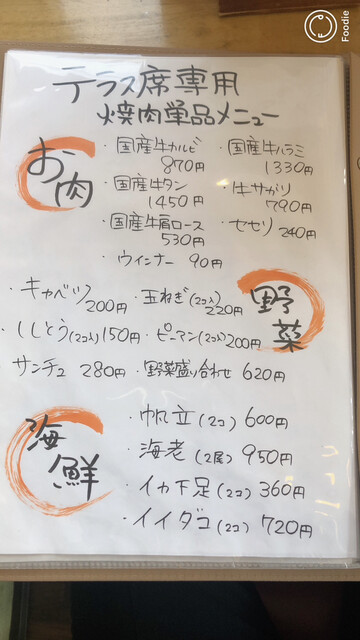 Foodie
テラス席専用
焼肉単品メニュー
お肉
・国産牛カルビ 870円
・国産牛ハラミ 1330円
・国産牛タン 1450円
・牛サガリ 790円
・国産牛肩ロース 530円
・セセリ 240円
・ウィンナー 90円
野菜
・キャベツ 200円
・玉ねぎ(2コ入) 220円
・ししとう(2コ入) 150円
・ピーマン(2コ入) 200円
サンチュ 280円
・野菜盛り合わせ 620円
海鮮
・帆立(2コ) 600円
・海老(2尾) 950円
・イカ下足(2コ) 360円
・イイダコ(2コ) 720円